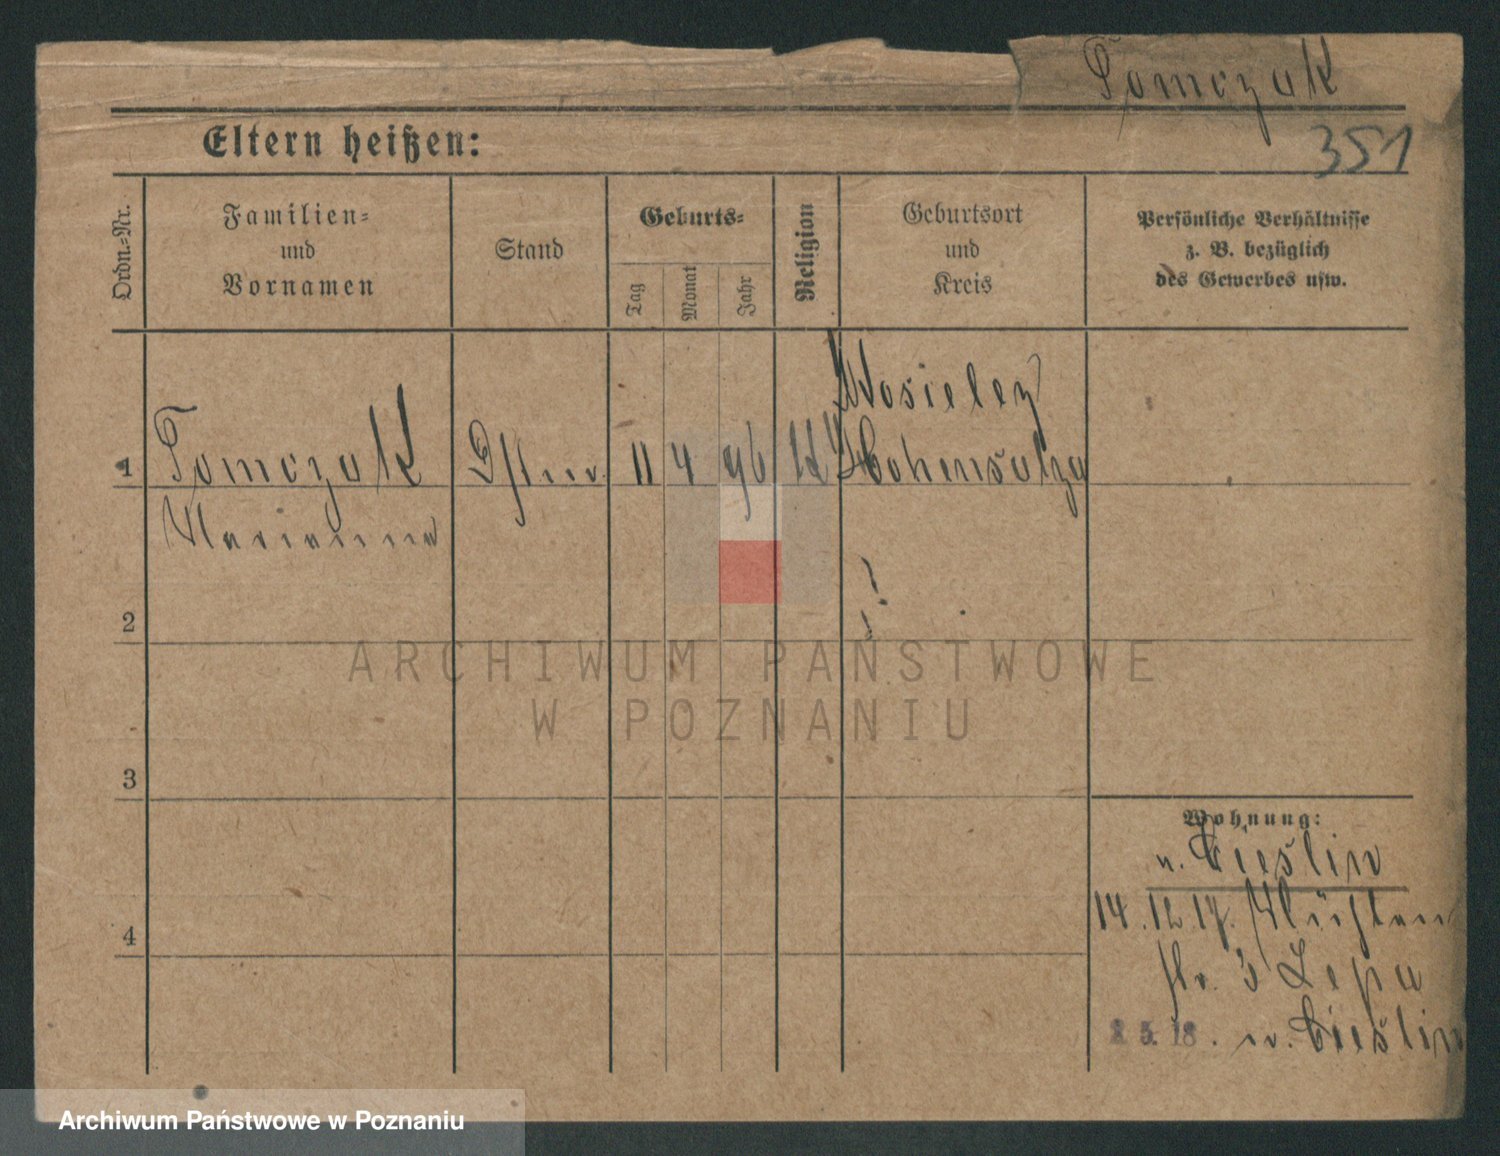 Tomczak
351
Eltern heißen:
Ordn.-Nr.
Familien-
und
Vornamen
Stand
Geburts-
Tag
Monat
Jahr
Religion
Geburtsort
und
Kreis
Persönliche Verhältnisse
z. B. bezüglich
des Gewerbes usw.
1
Tomczak
11 4 96
Hohensalza
Marianna
2
3
4
Wohnung:
n. Cieślin
14. 12. 17.
str. 3 Lepa
2 5. 18. n. Cieślin
ARCHIWUM PAŃSTWOWE
W POZNANIU
Archiwum Państwowe w Poznaniu